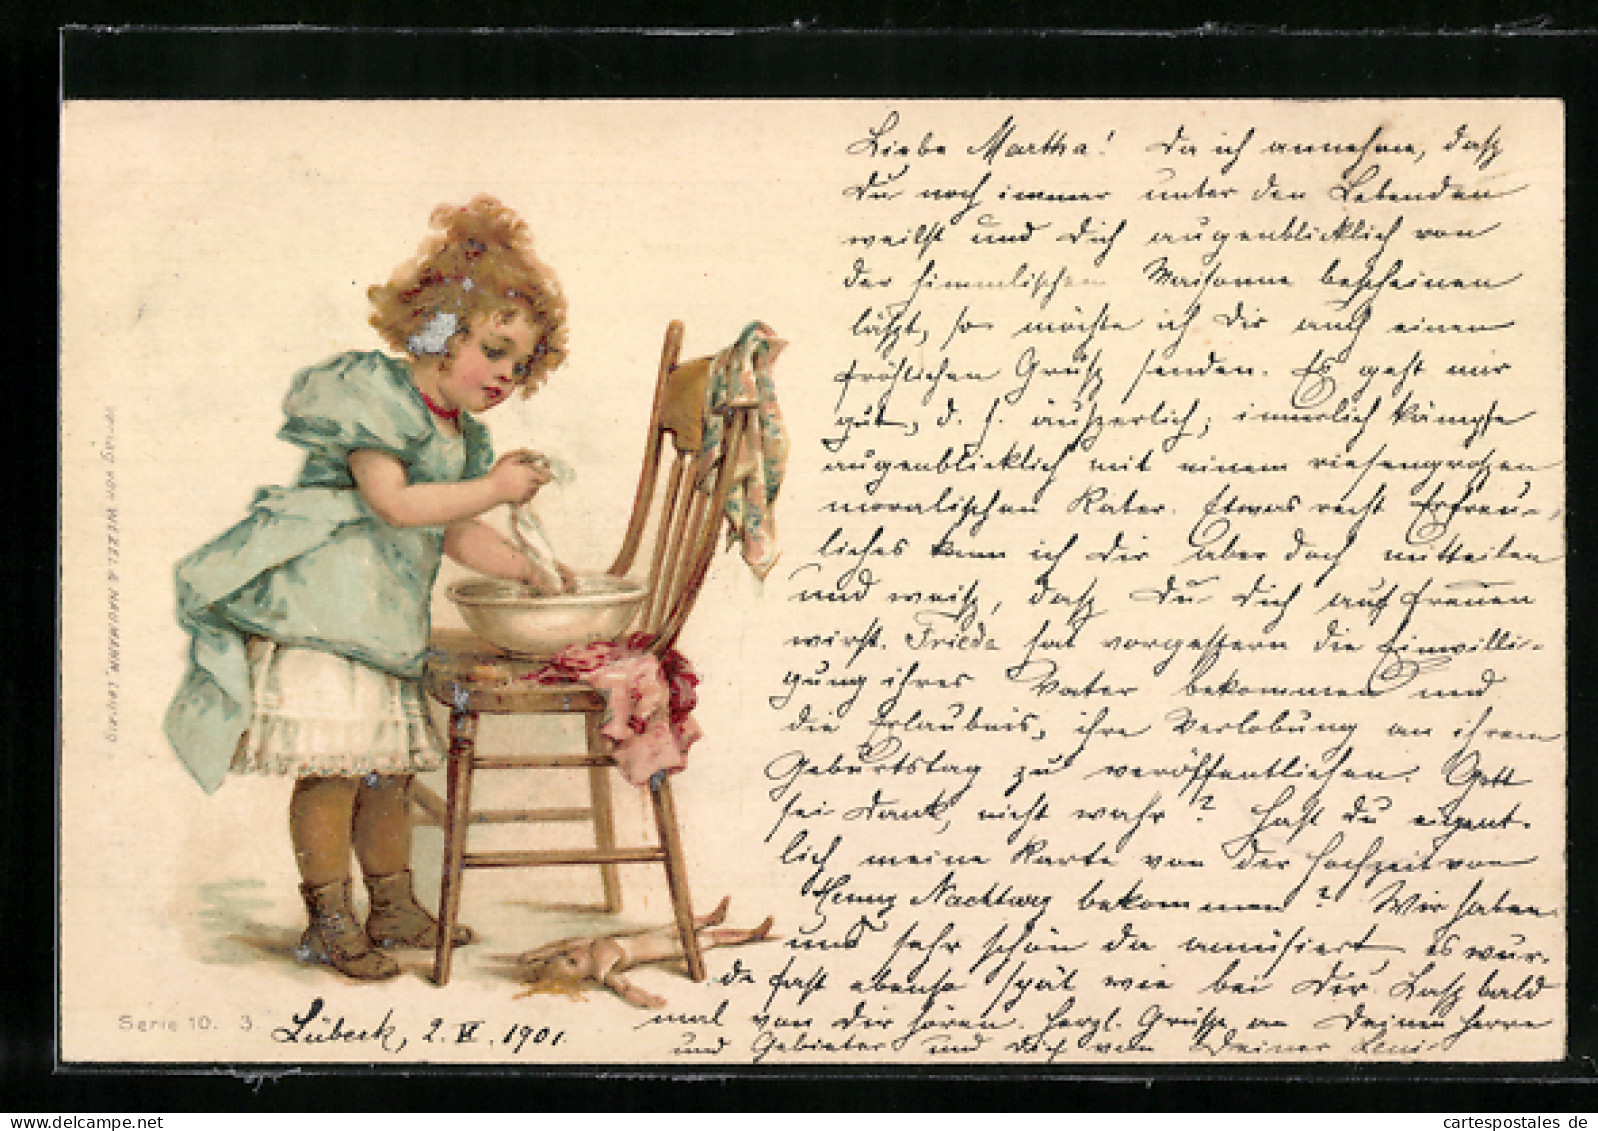 Liebe Martha! Da ich annehme, daß
Du noch immer unter den Lebenden
weilst und Dich augenblicklich von
der himmlischen Maisonne bescheinen
läßt, so möchte ich Dir auch einen
fröhlichen Gruß senden. Es geht mir
gut, d. h. äußerlich; innerlich kämpfe
augenblicklich mit einem riesengroßen
moralischen Kater. Etwas recht Erfreu-
liches kann ich Dir aber doch mitteilen
und weiß, daß Du Dich auch freuen
wirst. Frieda hat vorgestern die Einwilli-
gung ihres Vater bekommen und
die Erlaubnis, ihre Verlobung an ihrem
Geburtstag zu veröffentlichen. Gott
sei Dank, nicht wahr? Hast Du eigent-
lich meine Karte von der Hochzeit von
Henny Nachtweg bekommen? Wir haben
uns sehr schön da amüsiert, es wur-
de fast ebenso spät wie bei Dir. Laß bald
mal von Dir hören. Herzl. Grüße an Deinen Herrn
und Gebieter und Dich von Deiner Leni
Verlag von WEZEL & NAUMANN, Leipzig
Serie 10. 3.
Lübeck, 2. VI. 1901.
cartespostales de